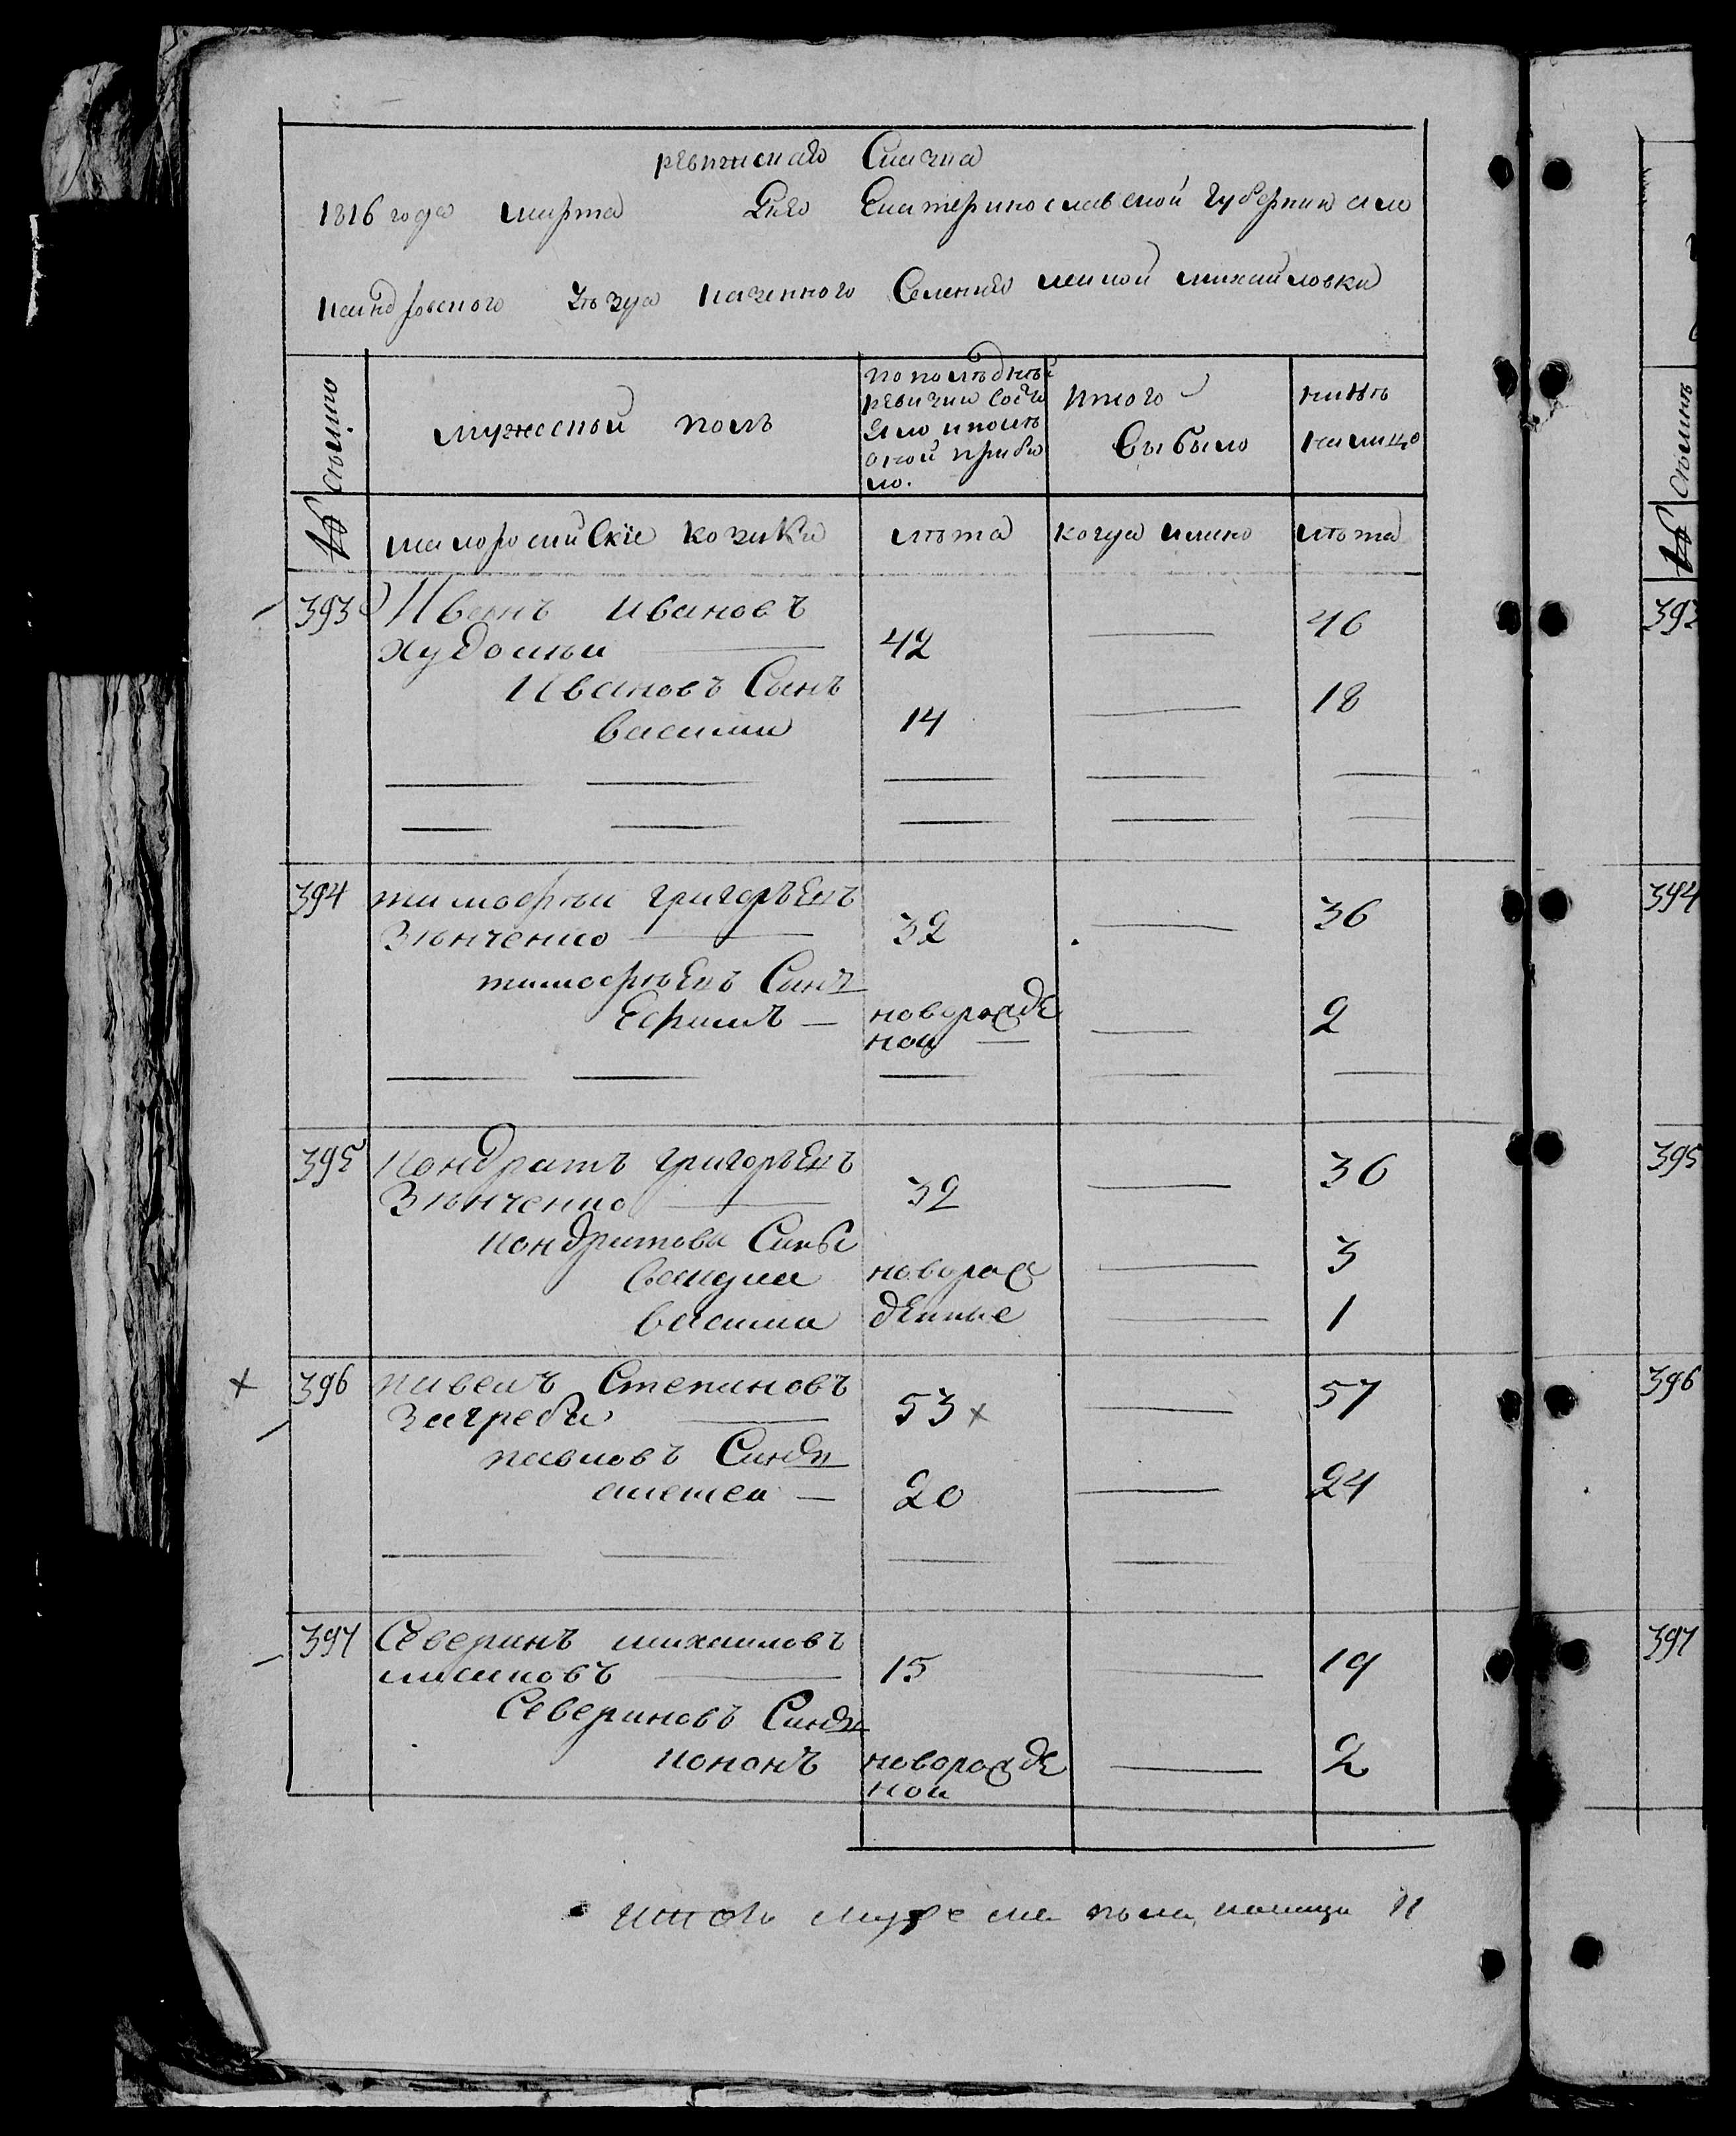 ревижская Скаска
1816 года марта дня Екатеринославской губернии але
ксандровского уѣзда казенного Селения малой михайловки
№ семьи
мужеской полъ
по послѣдней
ревизии состо
яло и послѣ
оной прибы
ло.
Изъ того
выбыло
нынѣ
на лицо
малороссийскіе козаки
лѣта
когда имено
лѣта
393 Иванъ Ивановъ 46
Худоший 42
Ивановъ Сынъ 18
василий 14
394 тимофѣй григорьевъ 36
Зѣнченко 32
тимофѣевъ Сынъ
Ефримъ новорожде 2
ной
395 Кондратъ григорьевъ 36
Зѣнченко 32
кондратовы Сыны 3
новорож
василий денные 1
396 павелъ Степановъ 57
Загреба 53 x
павловъ Сынъ 24
алексей 20
397 Северинъ михайловъ 19
15
Севериновъ Сынъ
кононъ новорожде 2
ной
итого мужеска пола налицо 11
393
394
395
396
397